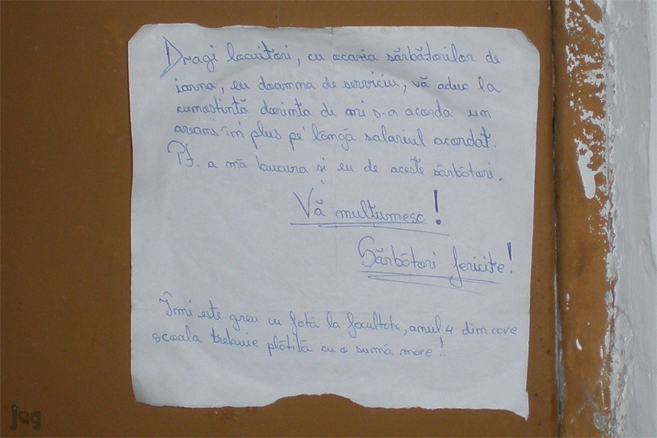 Dragi locuitori, cu ocazia sărbătorilor de
iarna, eu doamna de serviciu, vă aduc la
cunostintă dorinta de a-mi s-a acorda un
avans în plus pe lângă salariul acordat.
Pt. a mă bucura si eu de aceste sărbători.
Vă multumesc!
Sărbători fericite!
Îmi este greu cu fată la facultate, anul 4 din care
scoala trebuie plătită cu o sumă mare!!
jag